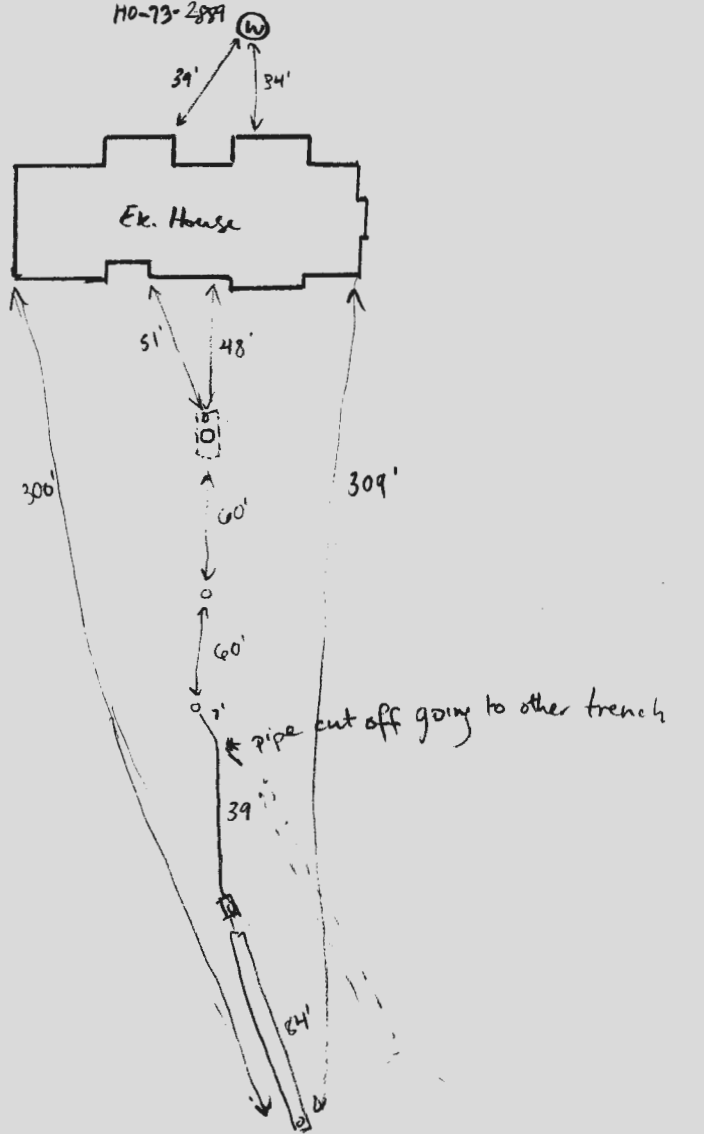 HO-73-2889
W
39'
34'
Ex. House
51'
48'
300'
309'
60'
60'
7'
* pipe cut off going to other trench
39'
84'